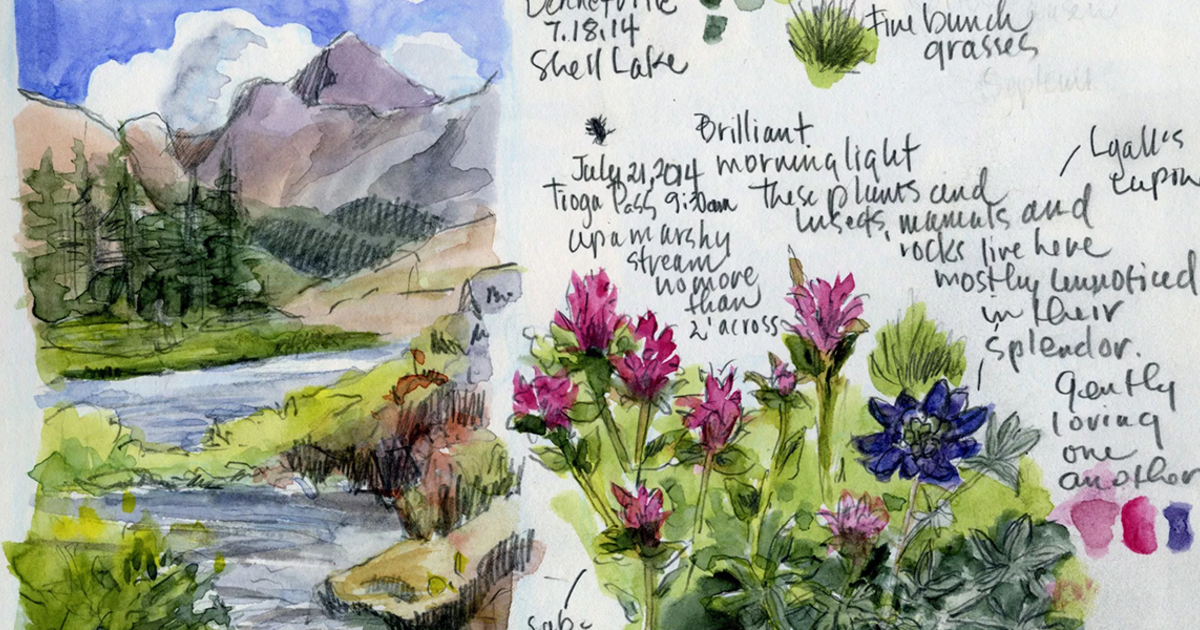 7.18.14
Shell Lake
Fine bunch
grasses
Brilliant
morning light
these plants and
insects, mammals and
rocks live here
mostly unnoticed
in their
splendor.
Gently
loving
one
another
July 21, 2014
Tioga Pass 9:30am
up a marshy
stream
no more
than
2' across
Lyall's
Lupin